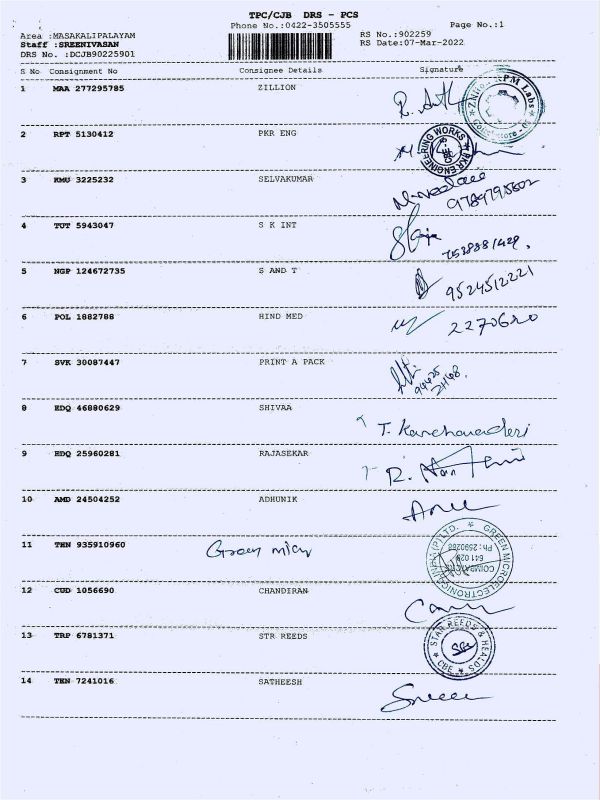 TPC/CJB DRS - PCS
Phone No.:0422-3505555 Page No.:1
Area :MASAKALIPALAYAM RS No.:902259
Staff :SREENIVASAN RS Date:07-Mar-2022
DRS No. :DCJB90225901
S No Consignment No Consignee Details Signature
1 MAA 277295785 ZILLION
2 RPT 5130412 PKR ENG
3 KMU 3225232 SELVAKUMAR
9789795602
4 TUT 5943047 S K INT
5 NGP 124672735 S AND T
9524512221
6 POL 1882788 HIND MED 2270620
7 SVK 30087447 PRINT A PACK
8 EDQ 46880629 SHIVAA
9 EDQ 25960281 RAJASEKAR
10 AMD 24504252 ADHUNIK
11 THN 935910960 Green micr
GREEN MICROELECTRONICS
Ph: 2590268
641 029
12 CUD 1056690 CHANDIRAN
13 TRP 6781371 STR REEDS
STAR REEDS & HEALDS
CBE
14 TKN 7241016 SATHEESH